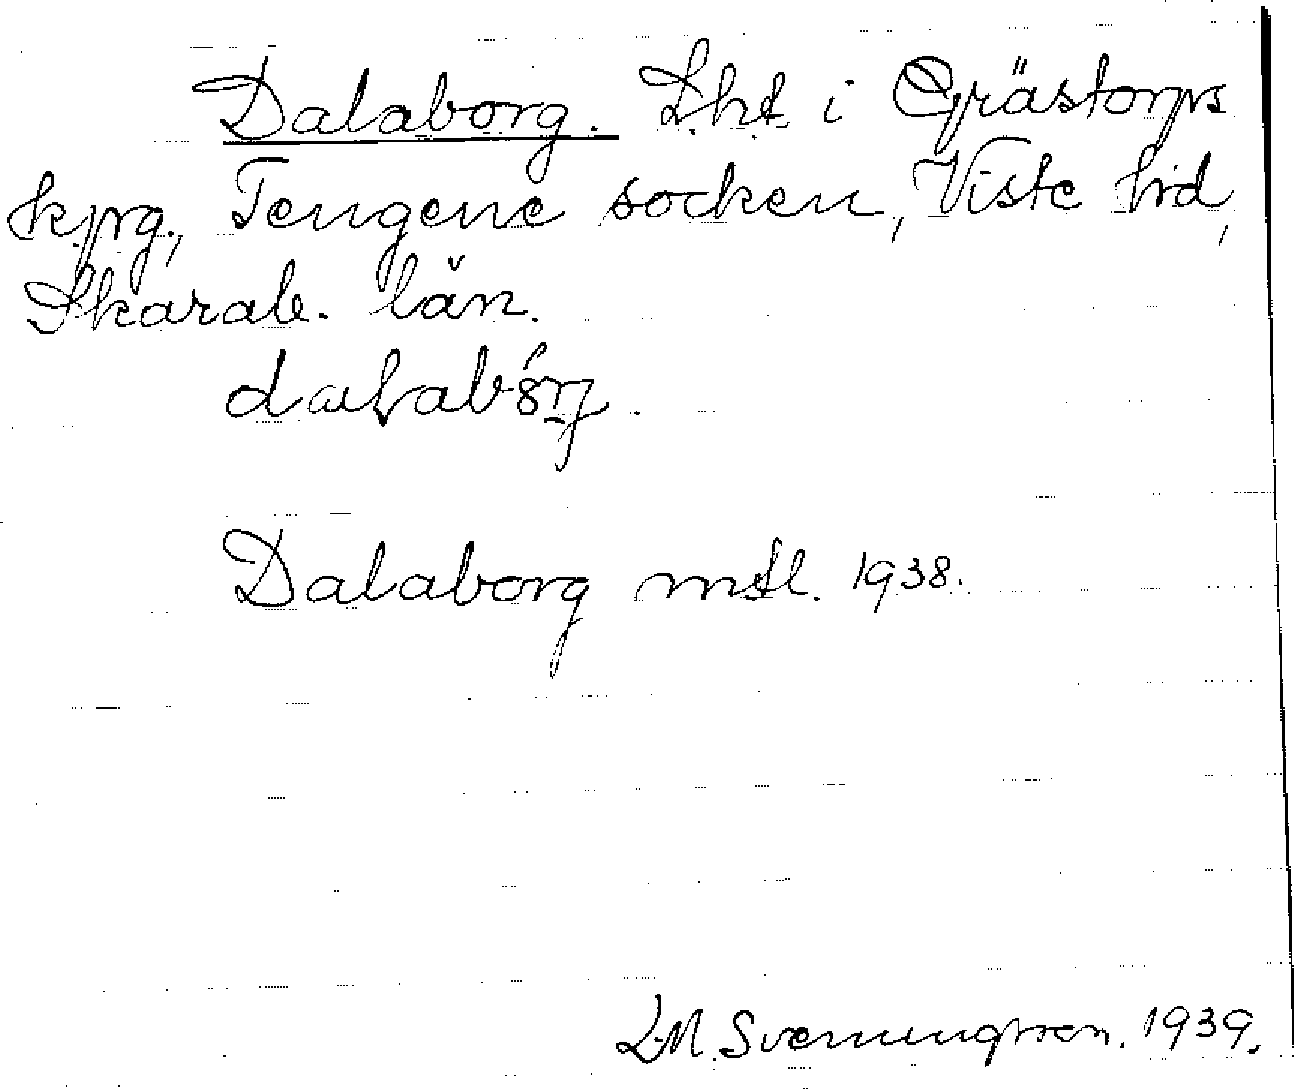 Dalaborg. Lht i Grästorps
kpg., Tengene socken, Viste hd,
Skarab. län.
Dalaborg mtl. 1938.
L.M. Svenungsson. 1939.